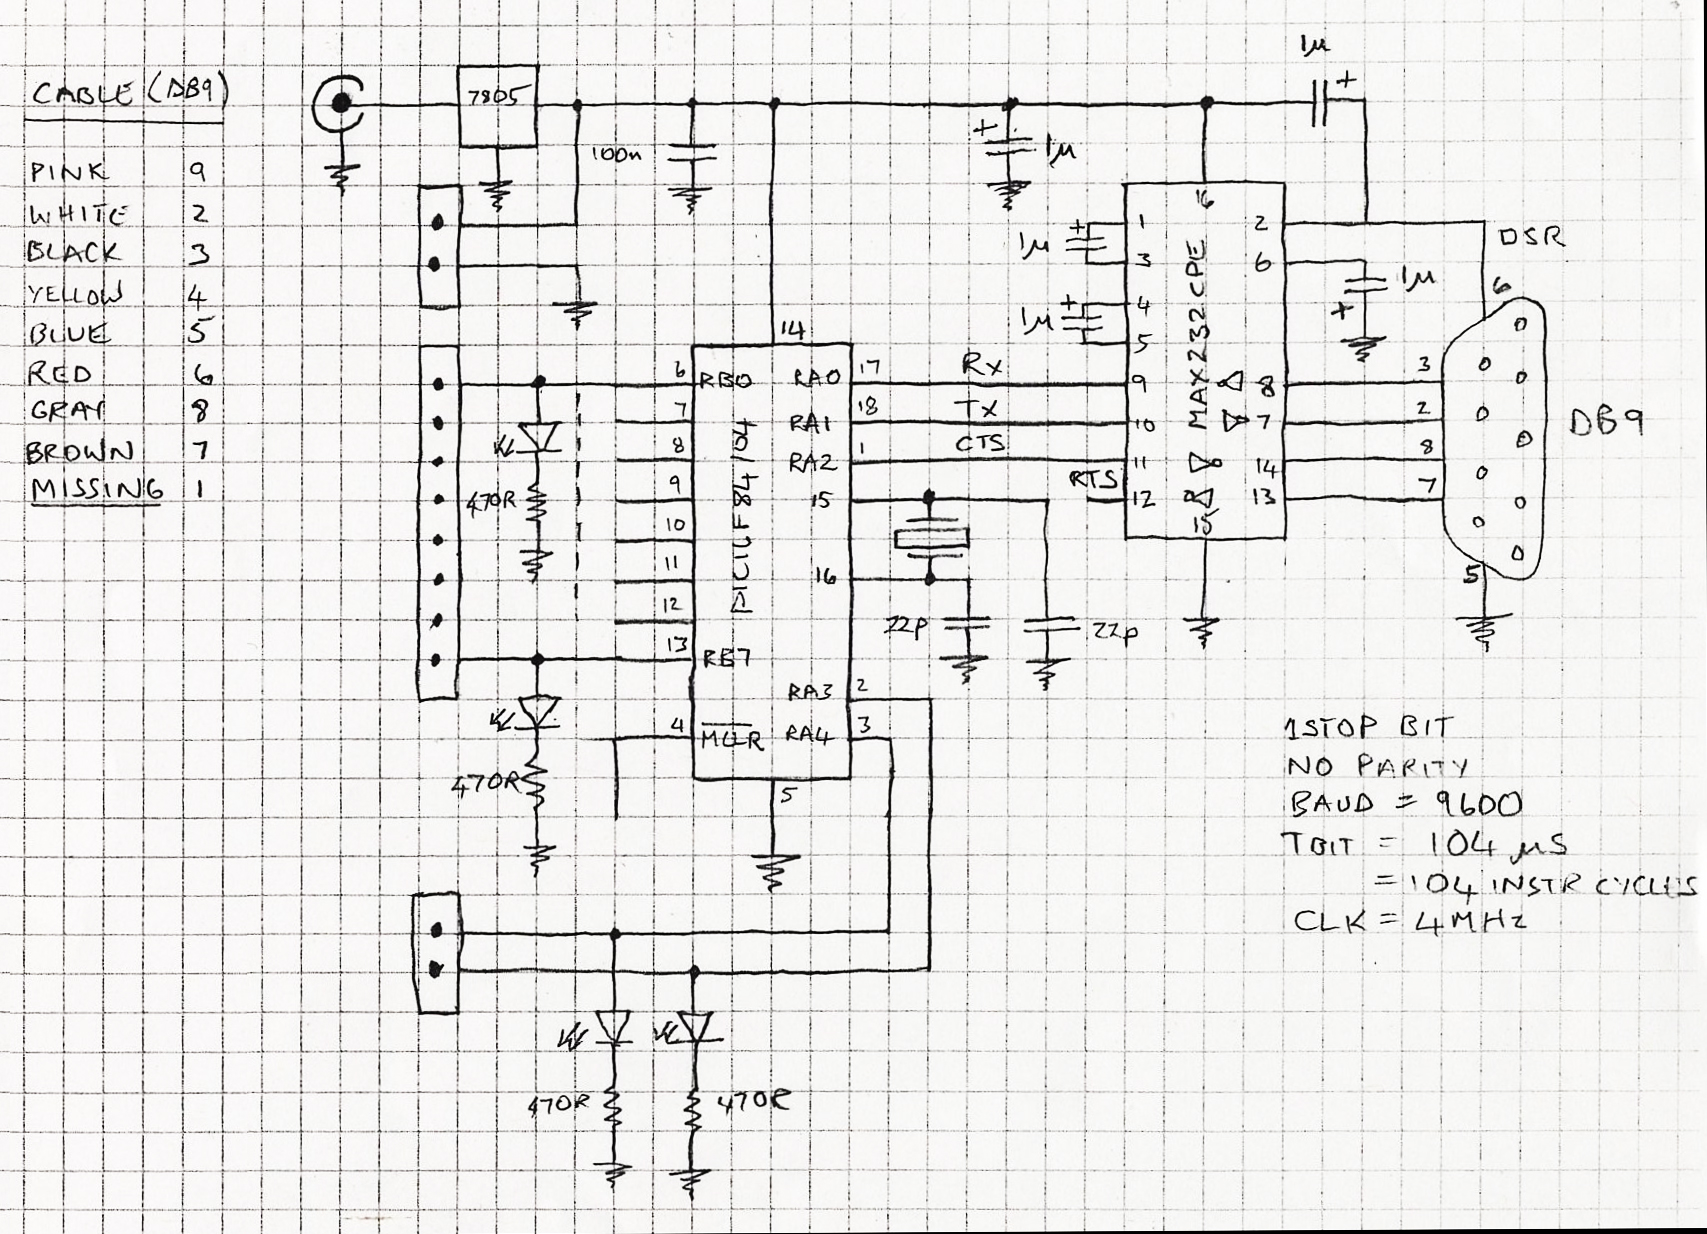 CABLE (DB9)
PINK 9
WHITE 2
BLACK 3
YELLOW 4
BLUE 5
RED 6
GRAY 8
BROWN 7
MISSING 1
7805
100n
1µ
+
1µ
+
16
1
3
4
5
9
10
11
12
15
2
6
8
7
14
13
MAX232CPE
1µ
+
1µ
+
1µ
+
DSR
6
3
2
8
7
5
DB9
14
6 RB0
7
8
9
10
11
12
13 RB7
4 MCLR
5
PIC16F84/04
RA0 17
RA1 18
RA2 1
15
16
RA3 2
RA4 3
Rx
Tx
CTS
RTS
22p
22p
470R
470R
470R
470R
1STOP BIT
NO PARITY
BAUD = 9600
TBIT = 104 µS
= 104 INSTR CYCLES
CLK = 4MHz